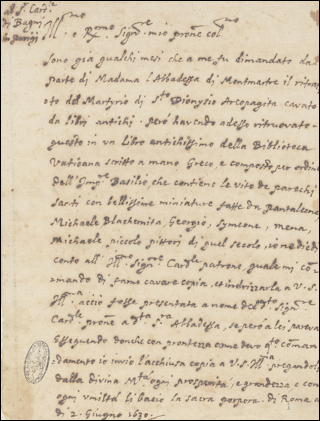 al Sr. Card.le
di Bagni
in Parigi
Ill.mo e R.mo Sig.re mio pron̄e col.mo
Sono già qualchi mesi che a me fu dimandato da
parte di Madama l'Abbadessa di Montmartre il ritra
to del Martyrio di S.to Dionysio Areopagita cavato
da libri antichi. però havendo adesso ritrovato
questo in un Libro antichissimo della Biblioteca
Vaticana scritto a mano Greco, e composto per ordine
dell'Imp.re Basilio, che contiene le vite de parechi
santi con bellissime miniature fatte da Pantaleone
Michaele Blachernita, Georgio, Symeone, Mena,
Michaele piccolo pittori di quel secolo, io ne diedi
conto all'Ill.mo Sig.re Card.le patrone, quale mi cō
mandò di farne cavare copia, et indrizzarla a V. S.
Ill.ma acciò fosse presentata a nome del d.to Sig.re
Card.le pron̄e a d.ta S.ra Abbadessa, se però le parerà
Esseguendo donche con prontezza come devo q.to com̄an
damento io invio l'acchiusa copia a V. S. Ill.ma pregandole
dalla divina M.tà ogni prosperità, e grandezza e con
ogni umiltà li bacio la sacra porpora. di Roma a
di 2. Giugno 1630.